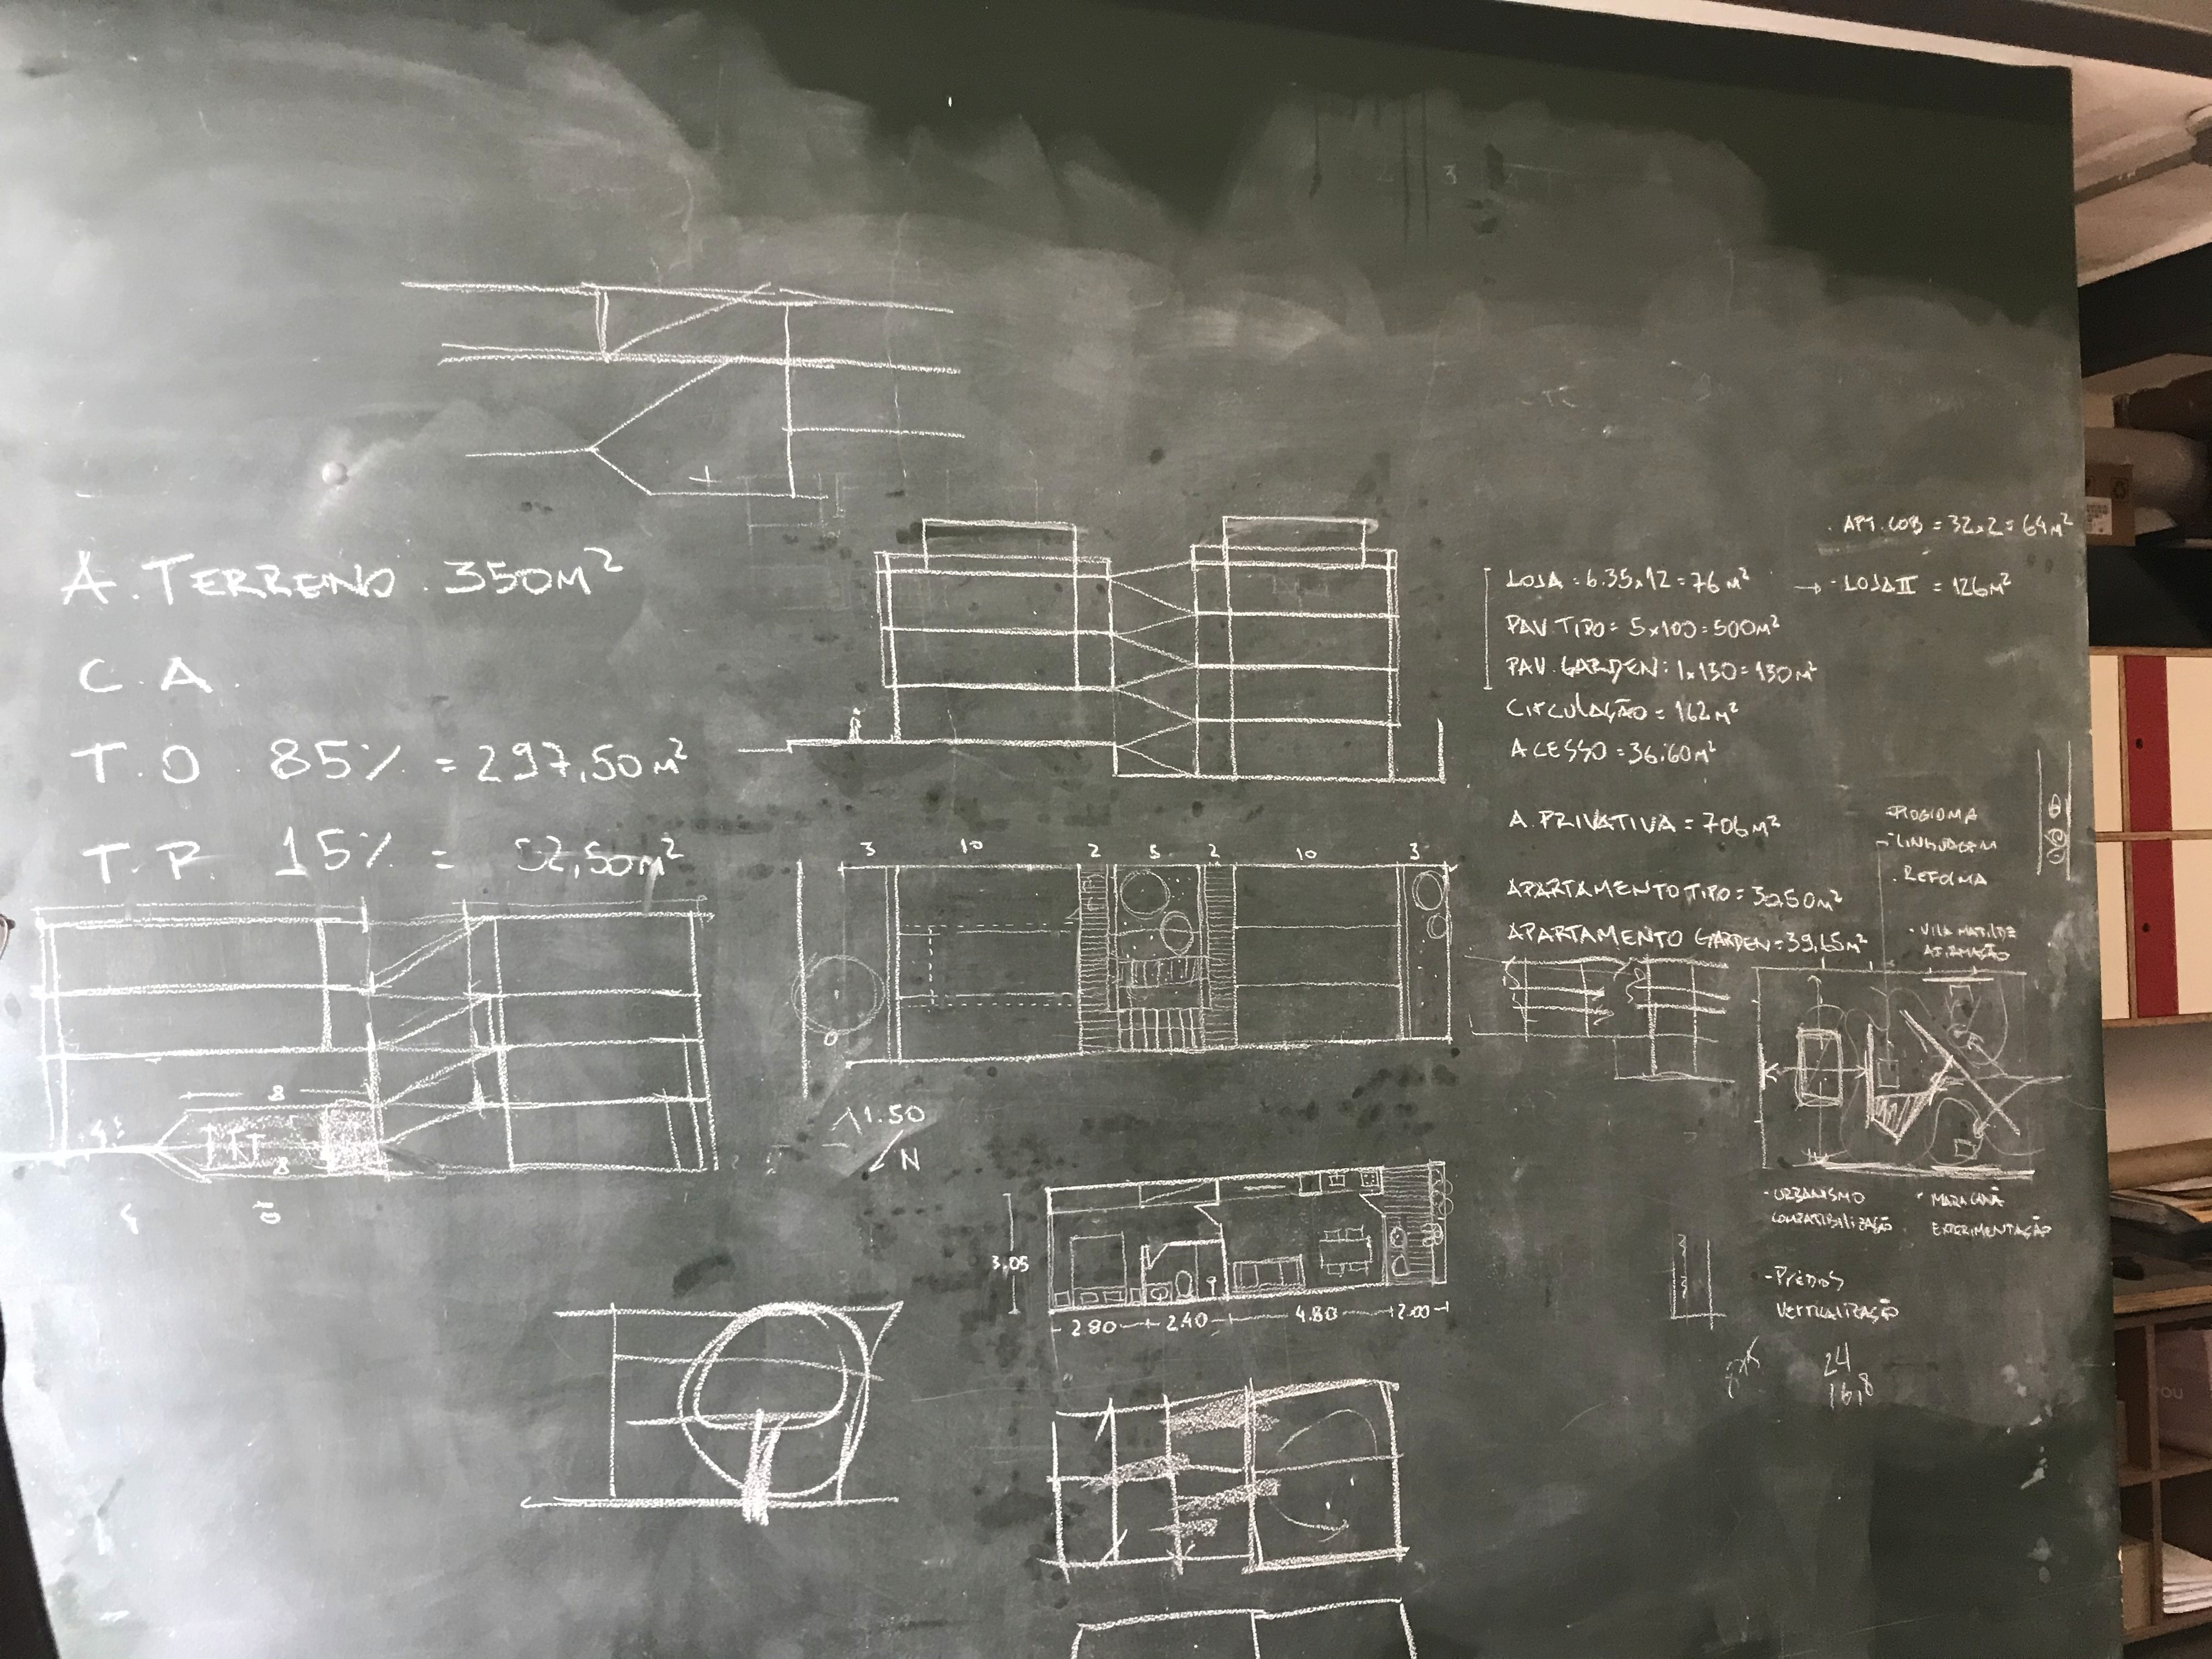 A. TERRENO. 350M²
C.A.
T.O. 85% = 297,50M²
T.P. 15% = 52,50M²
8
8
3 10 2 5 2 10 3
1.50
N
. APT. COB = 32x2 = 64M²
LOJA = 6.35x12 = 76M² → - LOJA II = 126M²
PAV. TIPO = 5x100 = 500M²
PAV. GARDEN: 1x130 = 130M²
CIRCULAÇÃO = 162M²
ACESSO = 36.60M²
A. PRIVATIVA = 706M²
APARTAMENTO TIPO = 30,50M²
APARTAMENTO GARDEN = 39,65M²
- LINGUAGEM
. REFORMA
- VILA MATILDE
AFIRMAÇÃO
- URBANISMO
COMPATIBILIZAÇÃO
- MARACANÃ
EXPERIMENTAÇÃO
- PRÉDIOS
VERTICALIZAÇÃO
24
16,8
3.05
2.80 2.40 4.80 2.00